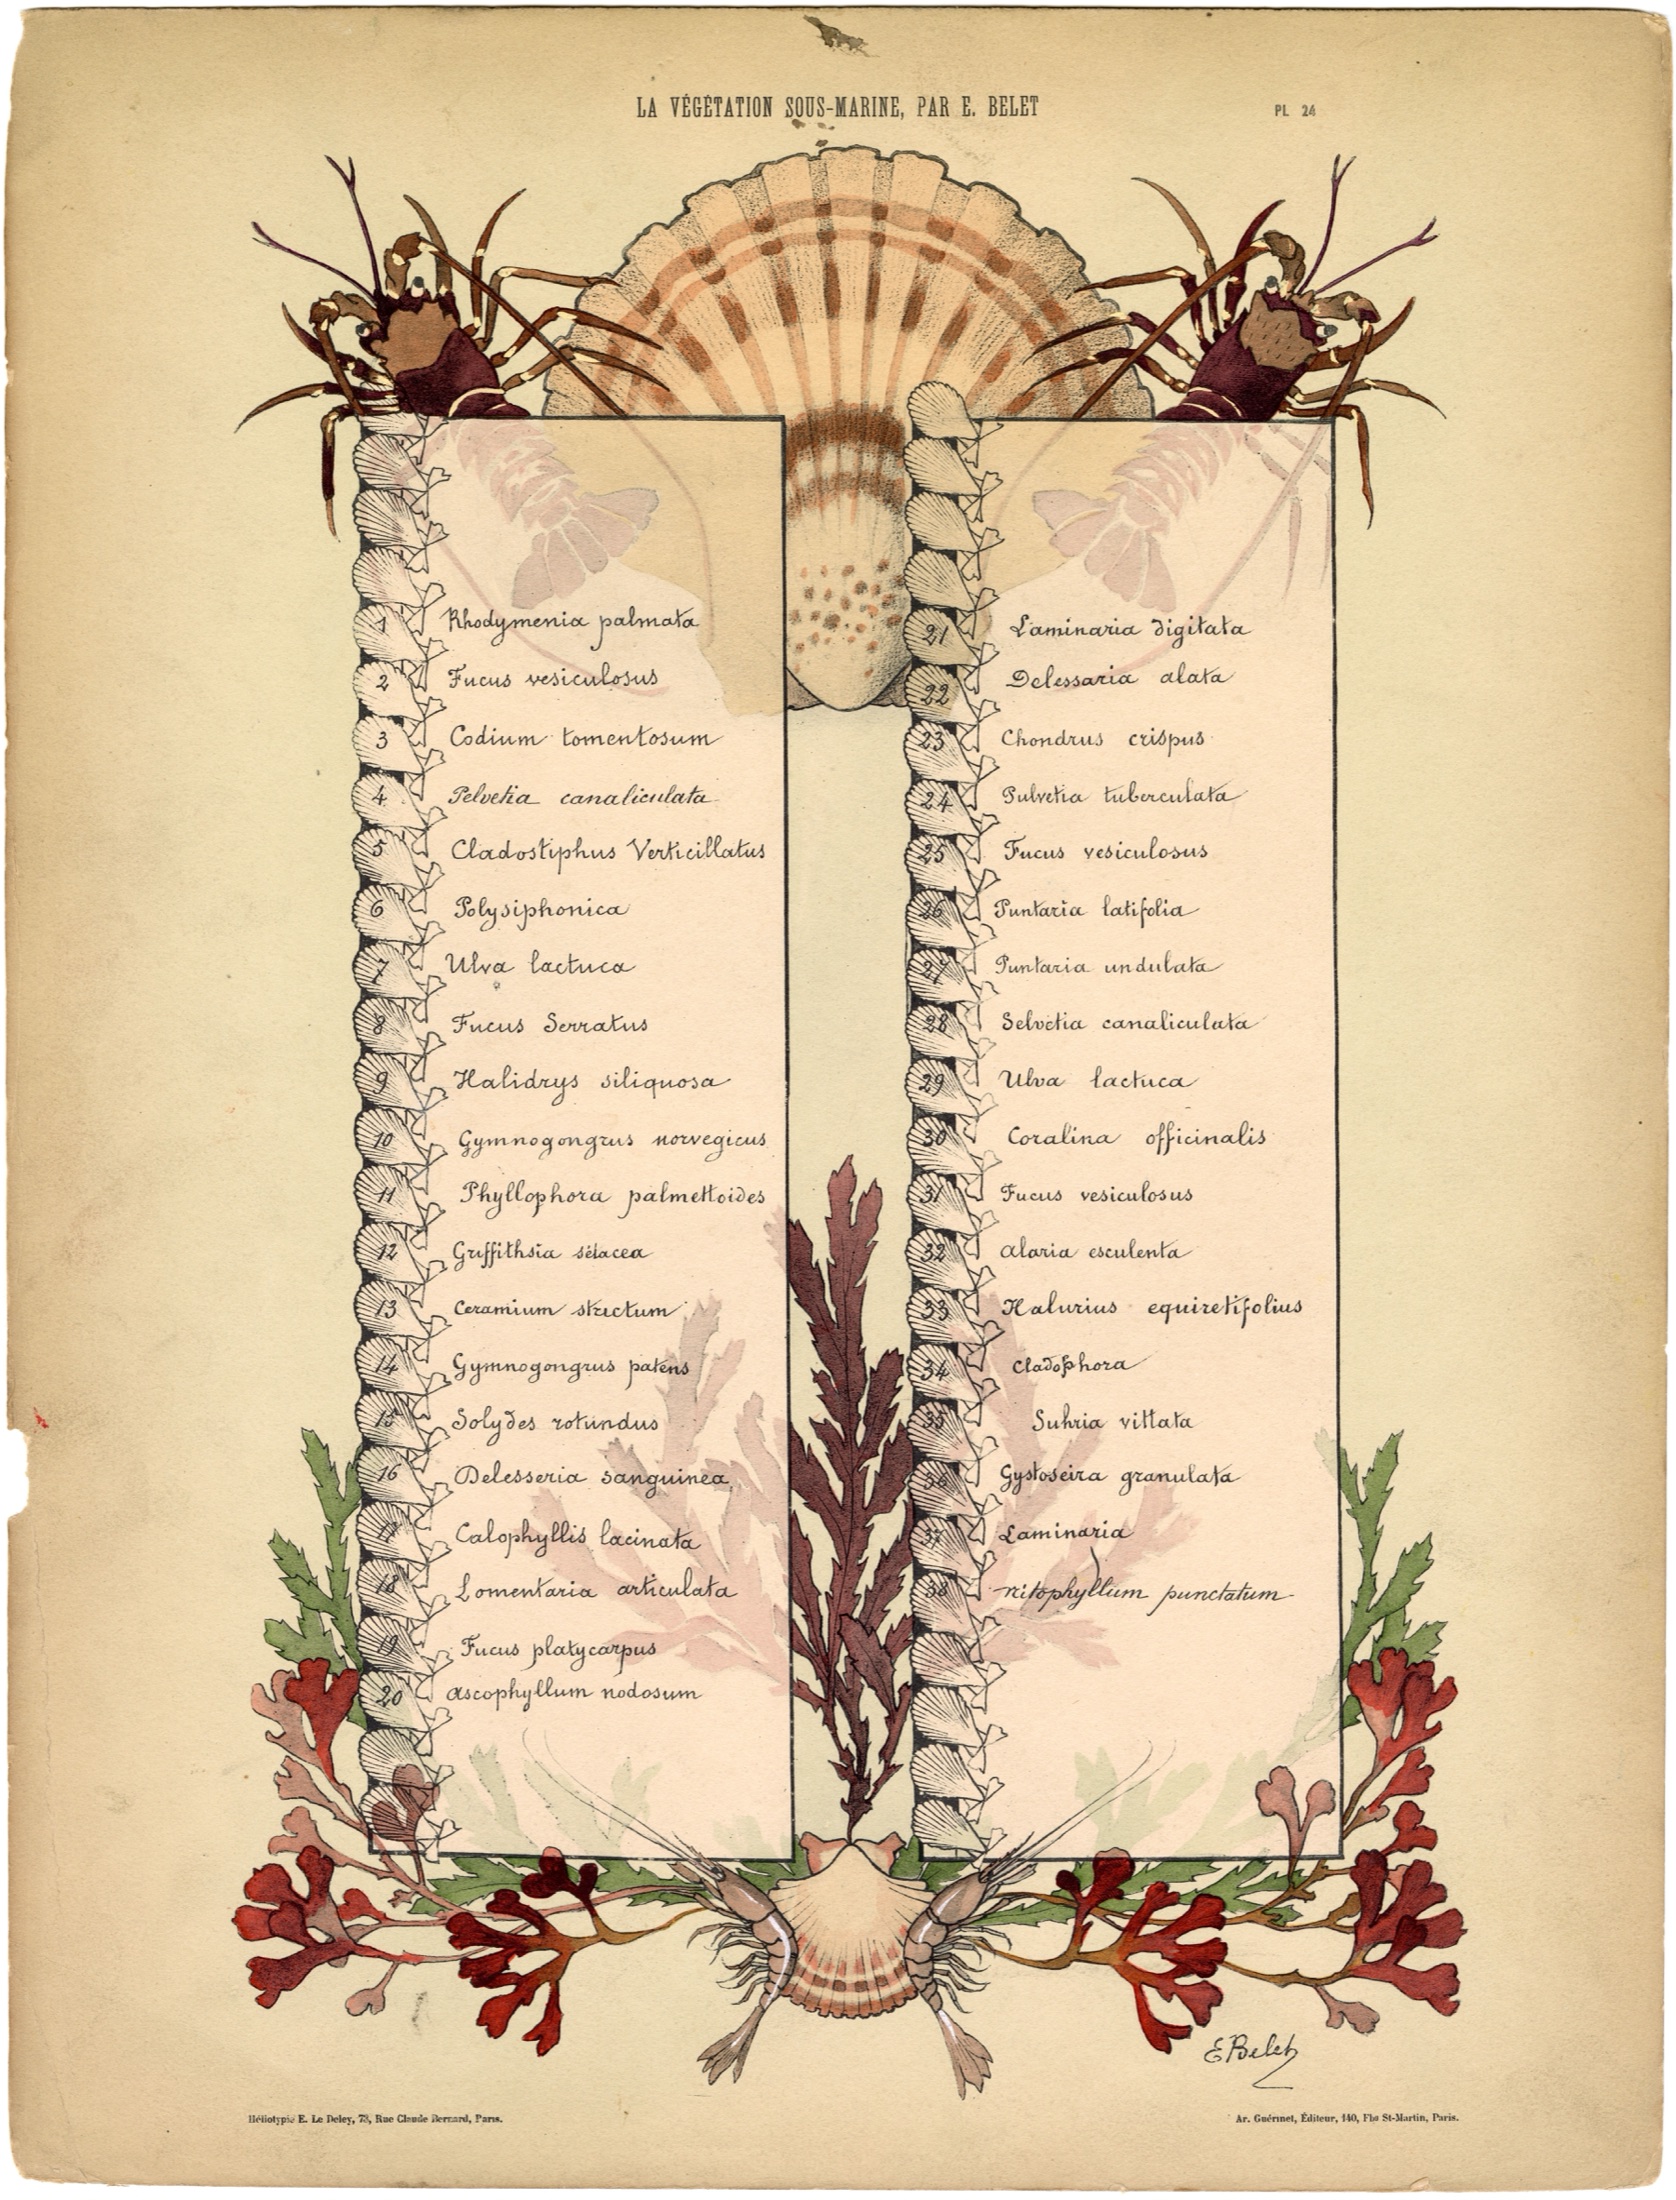 LA VÉGÉTATION SOUS-MARINE, PAR E. BELET
PL 24
1 Rhodymenia palmata
2 Fucus vesiculosus
3 Codium tomentosum
4 Pelvetia canaliculata
5 Cladostiphus Verticillatus
6 Polysiphonica
7 Ulva lactuca
8 Fucus Serratus
9 Halidrys siliquosa
10 Gymnogongrus norvegicus
11 Phyllophora palmettoides
12 Griffithsia sétacea
13 Ceramium strictum
14 Gymnogongrus patens
15 Solydes rotundus
16 Delesseria sanguinea
17 Calophyllis lacinata
18 Lomentaria articulata
19 Fucus platycarpus
20 Ascophyllum nodosum
21 Laminaria digitata
22 Delessaria alata
23 Chondrus crispus
24 Pulvetia tuberculata
25 Fucus vesiculosus
26 Puntaria latifolia
27 Puntaria undulata
28 Selvetia canaliculata
29 Ulva lactuca
30 Coralina officinalis
31 Fucus vesiculosus
32 Alaria esculenta
33 Halurius equiretifolius
34 Cladophora
35 Suhria vittata
36 Gystoseira granulata
37 Laminaria
38 nitophyllum punctatum
E Belet
Héliotypie E. Le Deley, 73, Rue Claude Bernard, Paris.
Ar. Guérinet, Éditeur, 140, Fbg St-Martin, Paris.